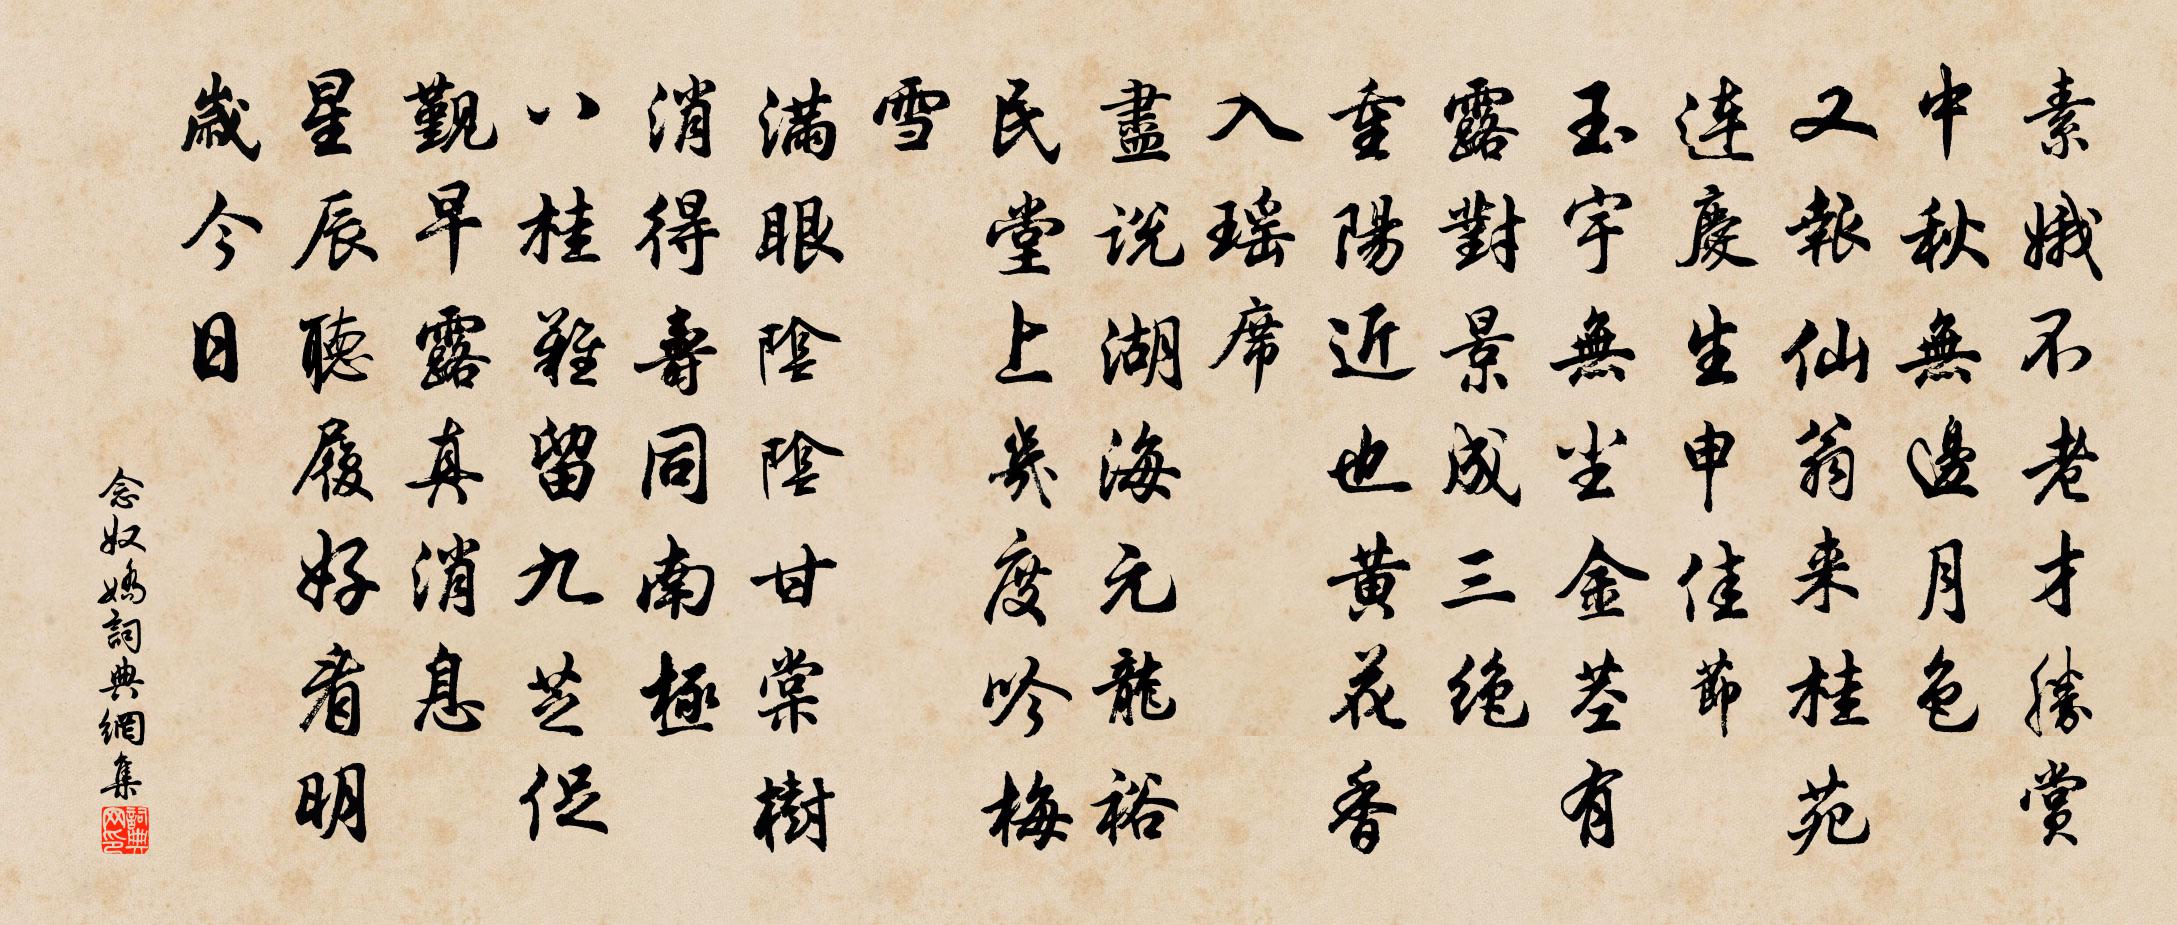 素娥不老才勝賞
中秋無邊月色
又報仙翁来桂苑
連慶生申佳節
玉宇無尘金茎有
露對景成三絶
重陽近也黃花香
入瑶席
盡説湖海元龍裕
民堂上幾度吟梅
雪
滿眼陰陰甘棠樹
消得壽同南極
八桂難留九芝促
覲早露真消息
星辰聽履好看明
歲今日
念奴嬌詞典網集
詞典網印